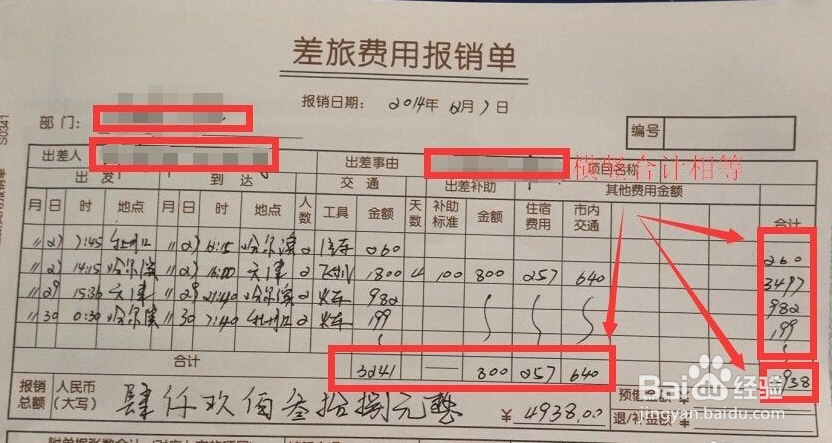 差旅费用报销单
报销日期： 2014年 12月 7日
部门：
编号
S0341
报销单
出差人 出差事由 项目名称
横竖合计相等
出发 到达 交通 出差补助 其他费用金额
月 日 时 地点 月 日 时 地点 人数 工具 金额 天数 补助标准 金额 住宿费用 市内交通 合计
11 27 7:45 11 27 12:15 哈尔滨 2 汽车 260 260
11 27 14:15 哈尔滨 11 27 天津 2 飞机 1800 4 100 800 257 640 3497
11 29 15:36 天津 11 29 21:40 哈尔滨 2 火车 982 982
11 30 0:30 哈尔滨 11 30 7:40 2 火车 199 199
合计 3241 — 800 257 640 4938
报销总额 人民币（大写） 肆仟玖佰叁拾捌元整 ￥4938.00 预借金额
退/补金额
Baidu经验
jingyan.baidu.com